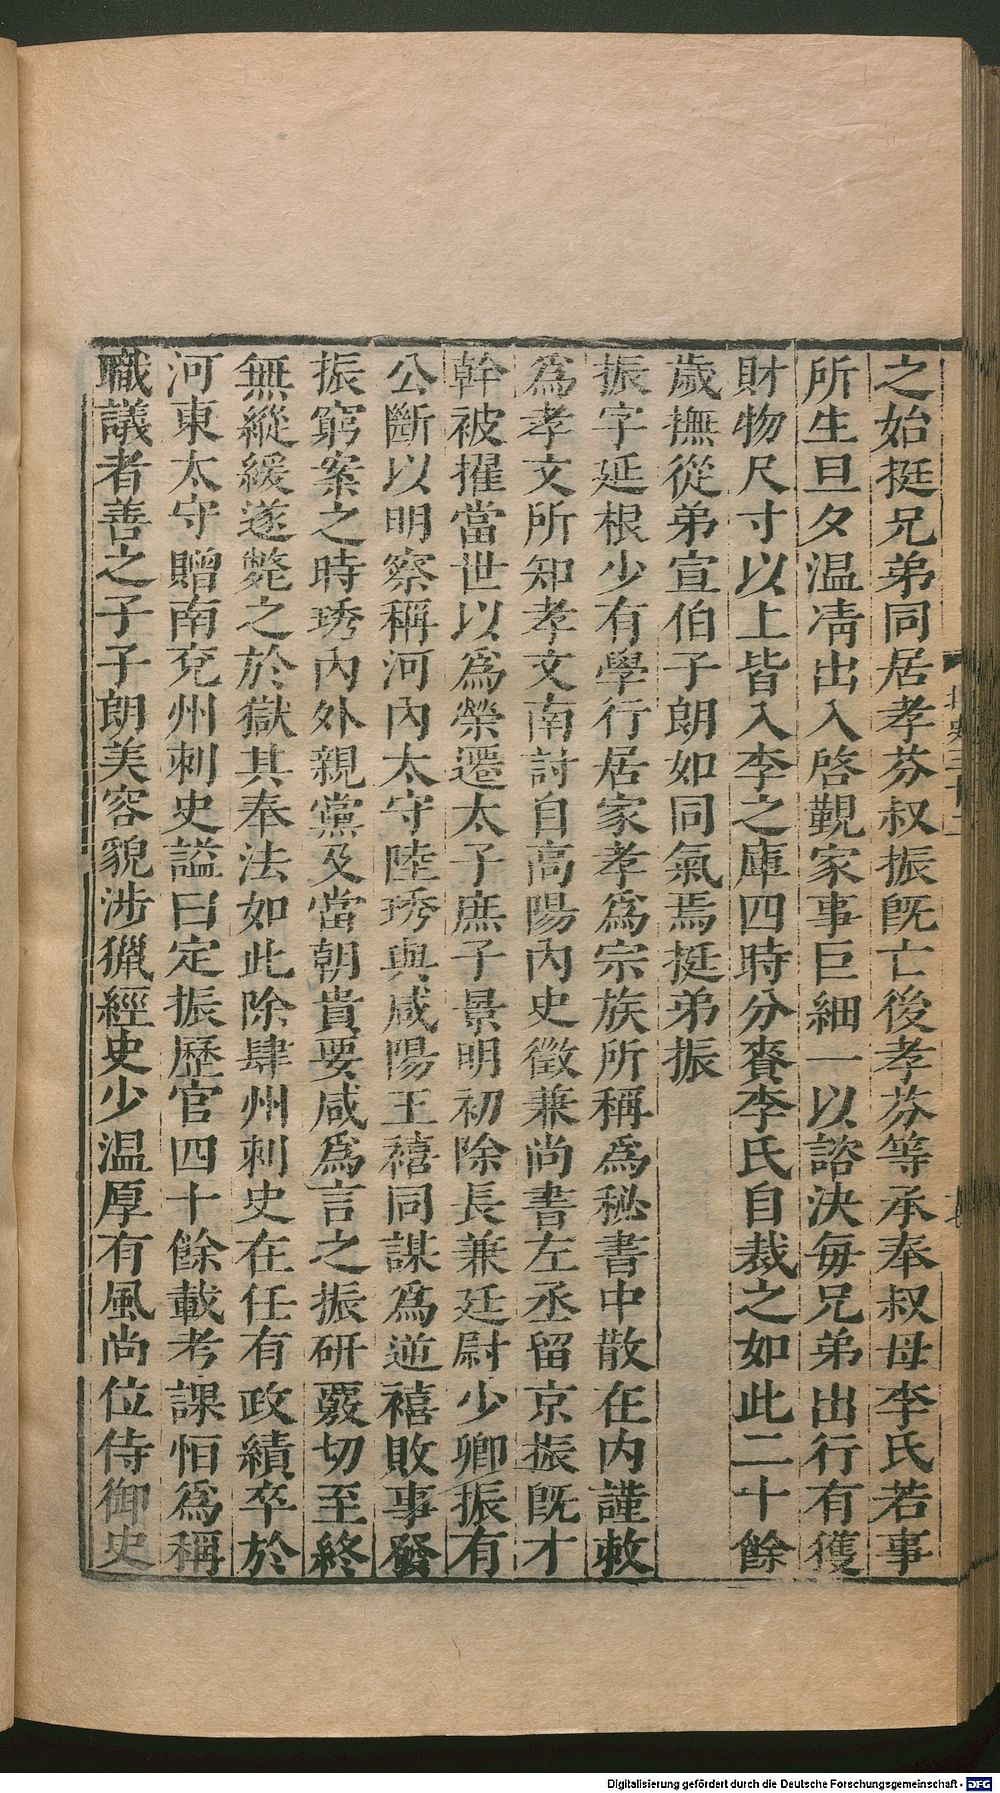 之始挺兄弟同居孝芬叔振旣亡後孝芬等承奉叔母李氏若事
所生旦夕温凊出入啓覲家事巨細一以諮決每兄弟出行有獲
財物尺寸以上皆入李之庫四時分賚李氏自裁之如此二十餘
歲撫從弟宣伯子朗如同氣焉挺弟振
振字延根少有學行居家孝爲宗族所稱爲秘書中散在内謹敕
爲孝文所知孝文南討自高陽内史徵兼尚書左丞留京振旣才
幹被擢當世以爲榮遷太子庶子景明初除長兼廷尉少卿振有
公斷以明察稱河内太守陸琇與咸陽王禧同謀爲逆禧敗事發
振窮案之時琇内外親黨及當朝貴要咸爲言之振研覈切至終
無縱緩遂斃之於獄其奉法如此除肆州刺史在任有政績卒於
河東太守贈南兗州刺史謚曰定振歷官四十餘載考課恒爲稱
職議者善之子子朗美容貌涉獵經史少温厚有風尚位侍御史
北史三十二
Digitalisierung gefördert durch die Deutsche Forschungsgemeinschaft - DFG